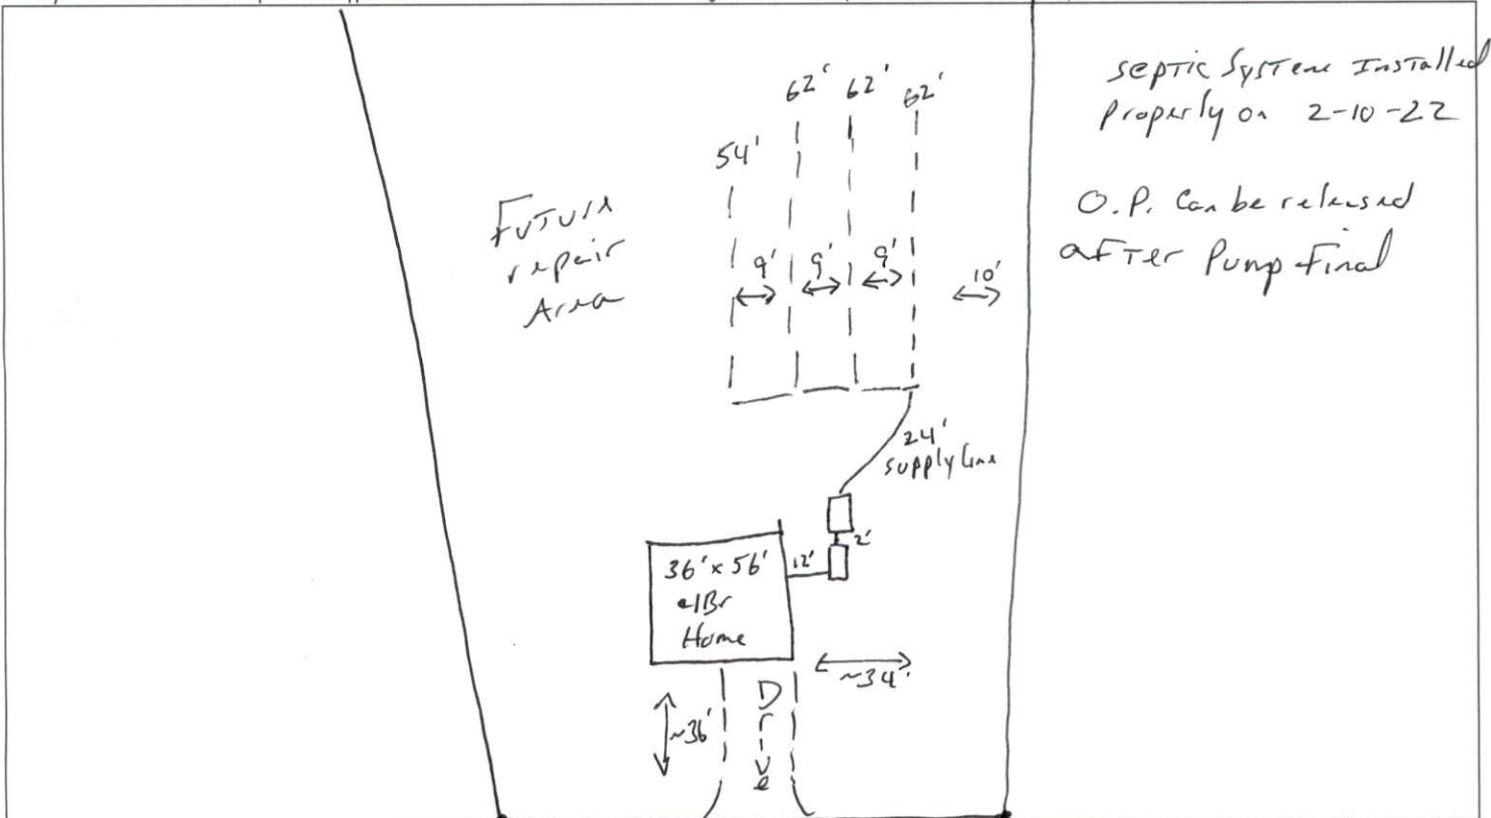 Septic System Installed
Properly on 2-10-22
O.P. Can be released
after Pump Final
62' 62' 62'
54'
Future
repair
Area
9' 9' 9' 10'
24'
supply line
2'
36' x 56' 12'
4Br
Home
~34'
~36'
Drive